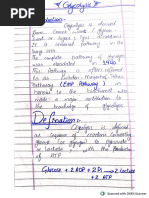 Glycolysis
Introduction:
Glycolysis is derived
from Greek word (glycose
sweet or sugar, lysis = dissolution)
It is universal pathway in the
living cells.
The complete pathway of glycolysis
was elucidated in 1940.
This pathway is often referred
to as Embden - Meyerhof Pathway
(EMP Pathway) in
honour to the scientist who
made a major contribution to
the knowledge of glycolysis
Defination:
Glycolysis is defined
as sequence of reaction converting
glucose (or glycogen) to pyruvate
or lactate with the production
of ATP
Glucose + 2 ADP + 2 Pi → 2 Lactate
+ 2 ATP
Scanned with CamScanner